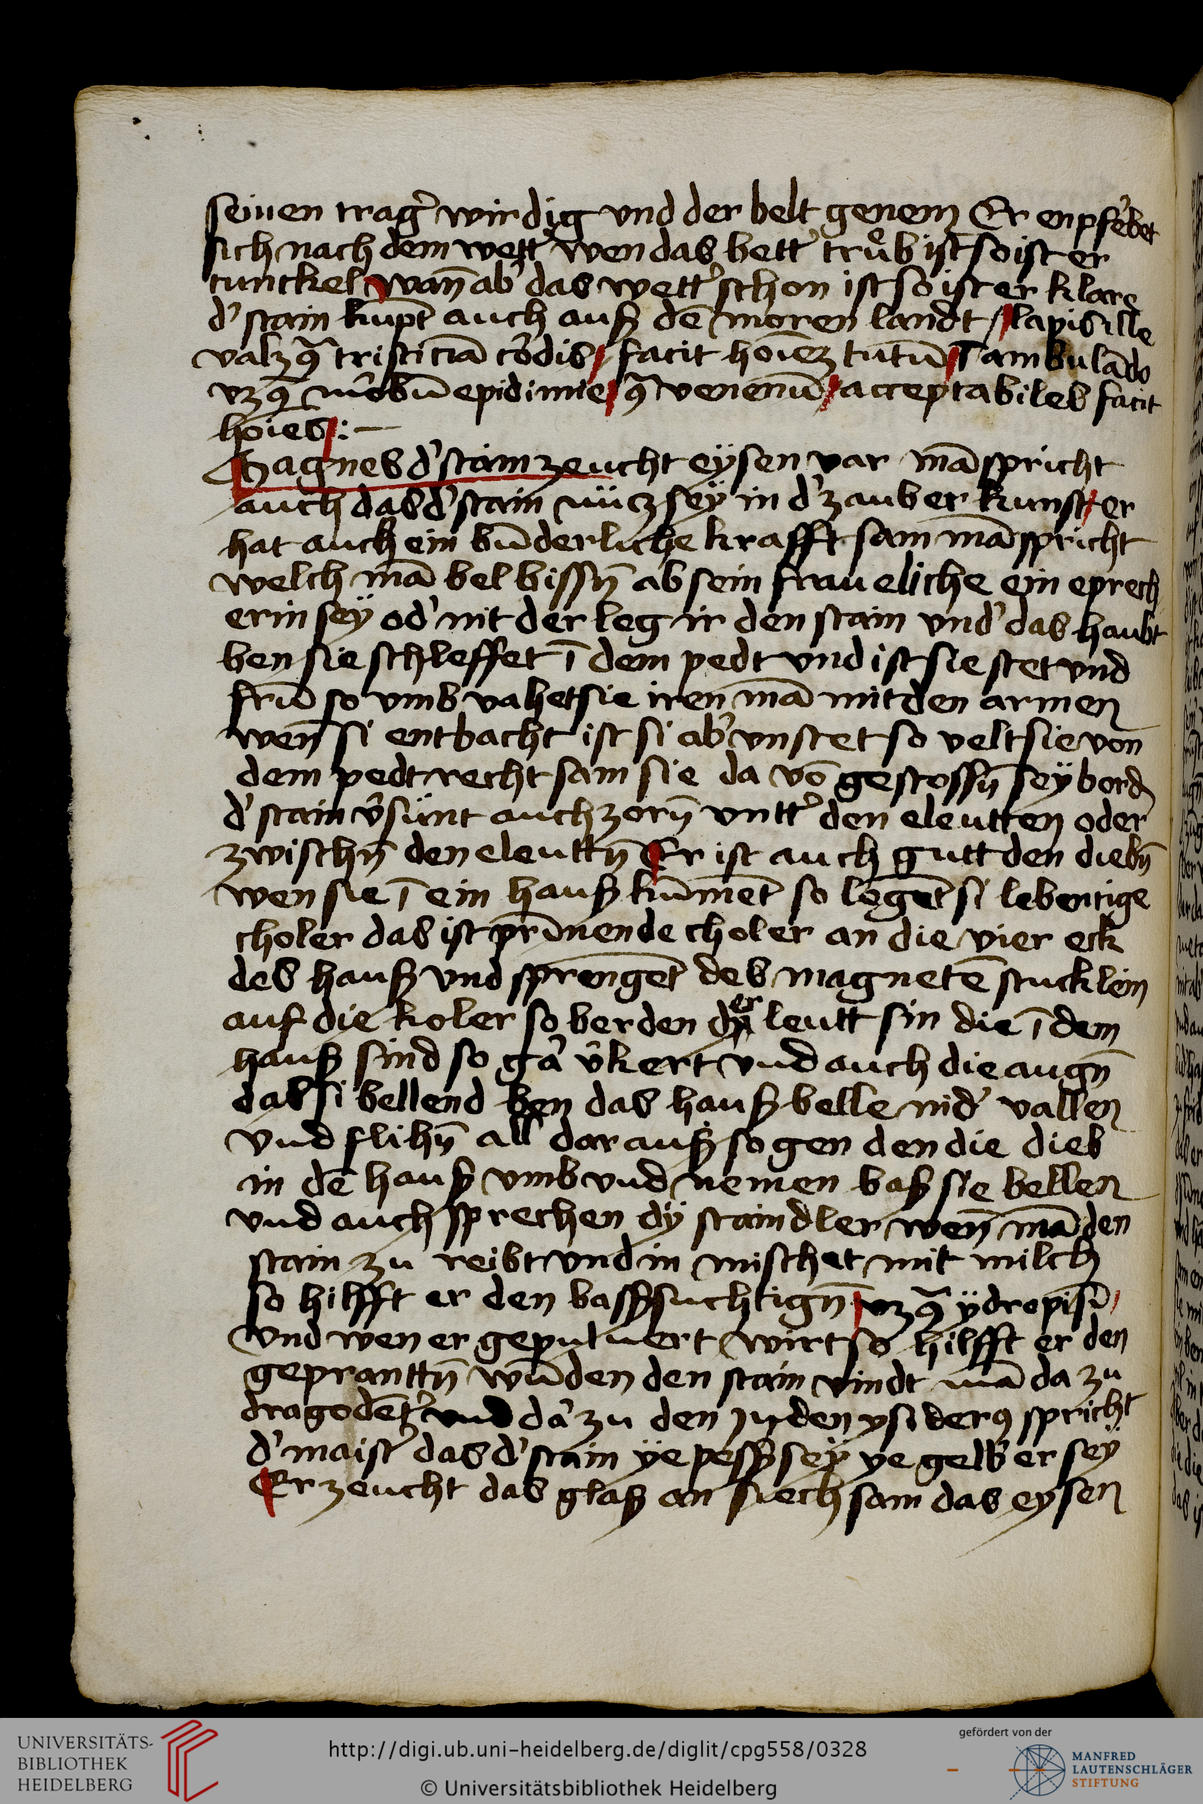 seinen trag᷒ wirdig vnd der belt genem Er enpfe᷒bet
sich nach dem wett᷒ wen das bett᷒ trůb ist so ist er
tunckel wan̄ ab᷒ das wett᷒ schon ist so ist er klare
d᷒ stain kūpt auch auß dē moren landt / lapis ille
valz q̄ tristiciā co᷒dis / facit hoīez tutū ambulādo
vz q̄ epidimie / q̄ venenū / acceptabiles facit
hoīes :—
Magnes d᷒ stain zeucht eÿsen var mā spricht
auch das d᷒ stain nücz seÿ in d᷒ zauber kunst / er
hat auch ein būderliche krafft sam mā spricht
welch mā bel bissn̄ ab sein frau eliche ein eprech
erin seÿ od᷒ nit der leg ir den stain vnd᷒ das haubt
ben sie schleffet ī dem pedt vnd ist sie stet vnd
frū so vmb vahet sie iren mā mit den armen
wen̄ si entbacht ist si ab᷒ vnstet so velt sie von
dem pedt recht sam sie da vō gestossn̄ seÿ bord
d᷒ stain v᷒sünt auch zorn̄ vntt᷒ den eleutten oder
zwischn̄ den eleuttn̄ Er ist auch gutt den diebn̄
wen sie ī ein hauß kūmēt so legēt si lebentige
choler das ist prīnende choler an die vier eck
des hauß vnd sprengēt des magnetē stucklein
auf die koler so berden der leutt sin die ī dem
hauß sind so ga᷒ v᷒kert vnd auch die augn̄
das si bellend ben das hauß belle nid᷒ vallen
vnd flihn̄ all dar auß so gen den die dieb
in dē hauß vmb vnd nemen baß sie bellen
vnd auch sprechen dÿ staindler wen̄ mā den
stain zu reibt vnd in mischet mit milch
so hilfft er den bassersuchtign̄ / vz q̄ ÿdropisī /
vnd wen er gepuluert wirt so hilfft er den
geprantn̄ wūden den stain vindt mā da zu
vnd da᷒ zu den Jnden ysiderꝰ spricht
d᷒ maist᷒ das d᷒ stain ÿe pesß seÿ ye gelb᷒ er seÿ
Er zeucht das glaß an siech sam das eysen
UNIVERSITÄTS-
BIBLIOTHEK
HEIDELBERG
http://digi.ub.uni-heidelberg.de/diglit/cpg558/0328
© Universitätsbibliothek Heidelberg
gefördert von der
MANFRED
LAUTENSCHLÄGER
STIFTUNG